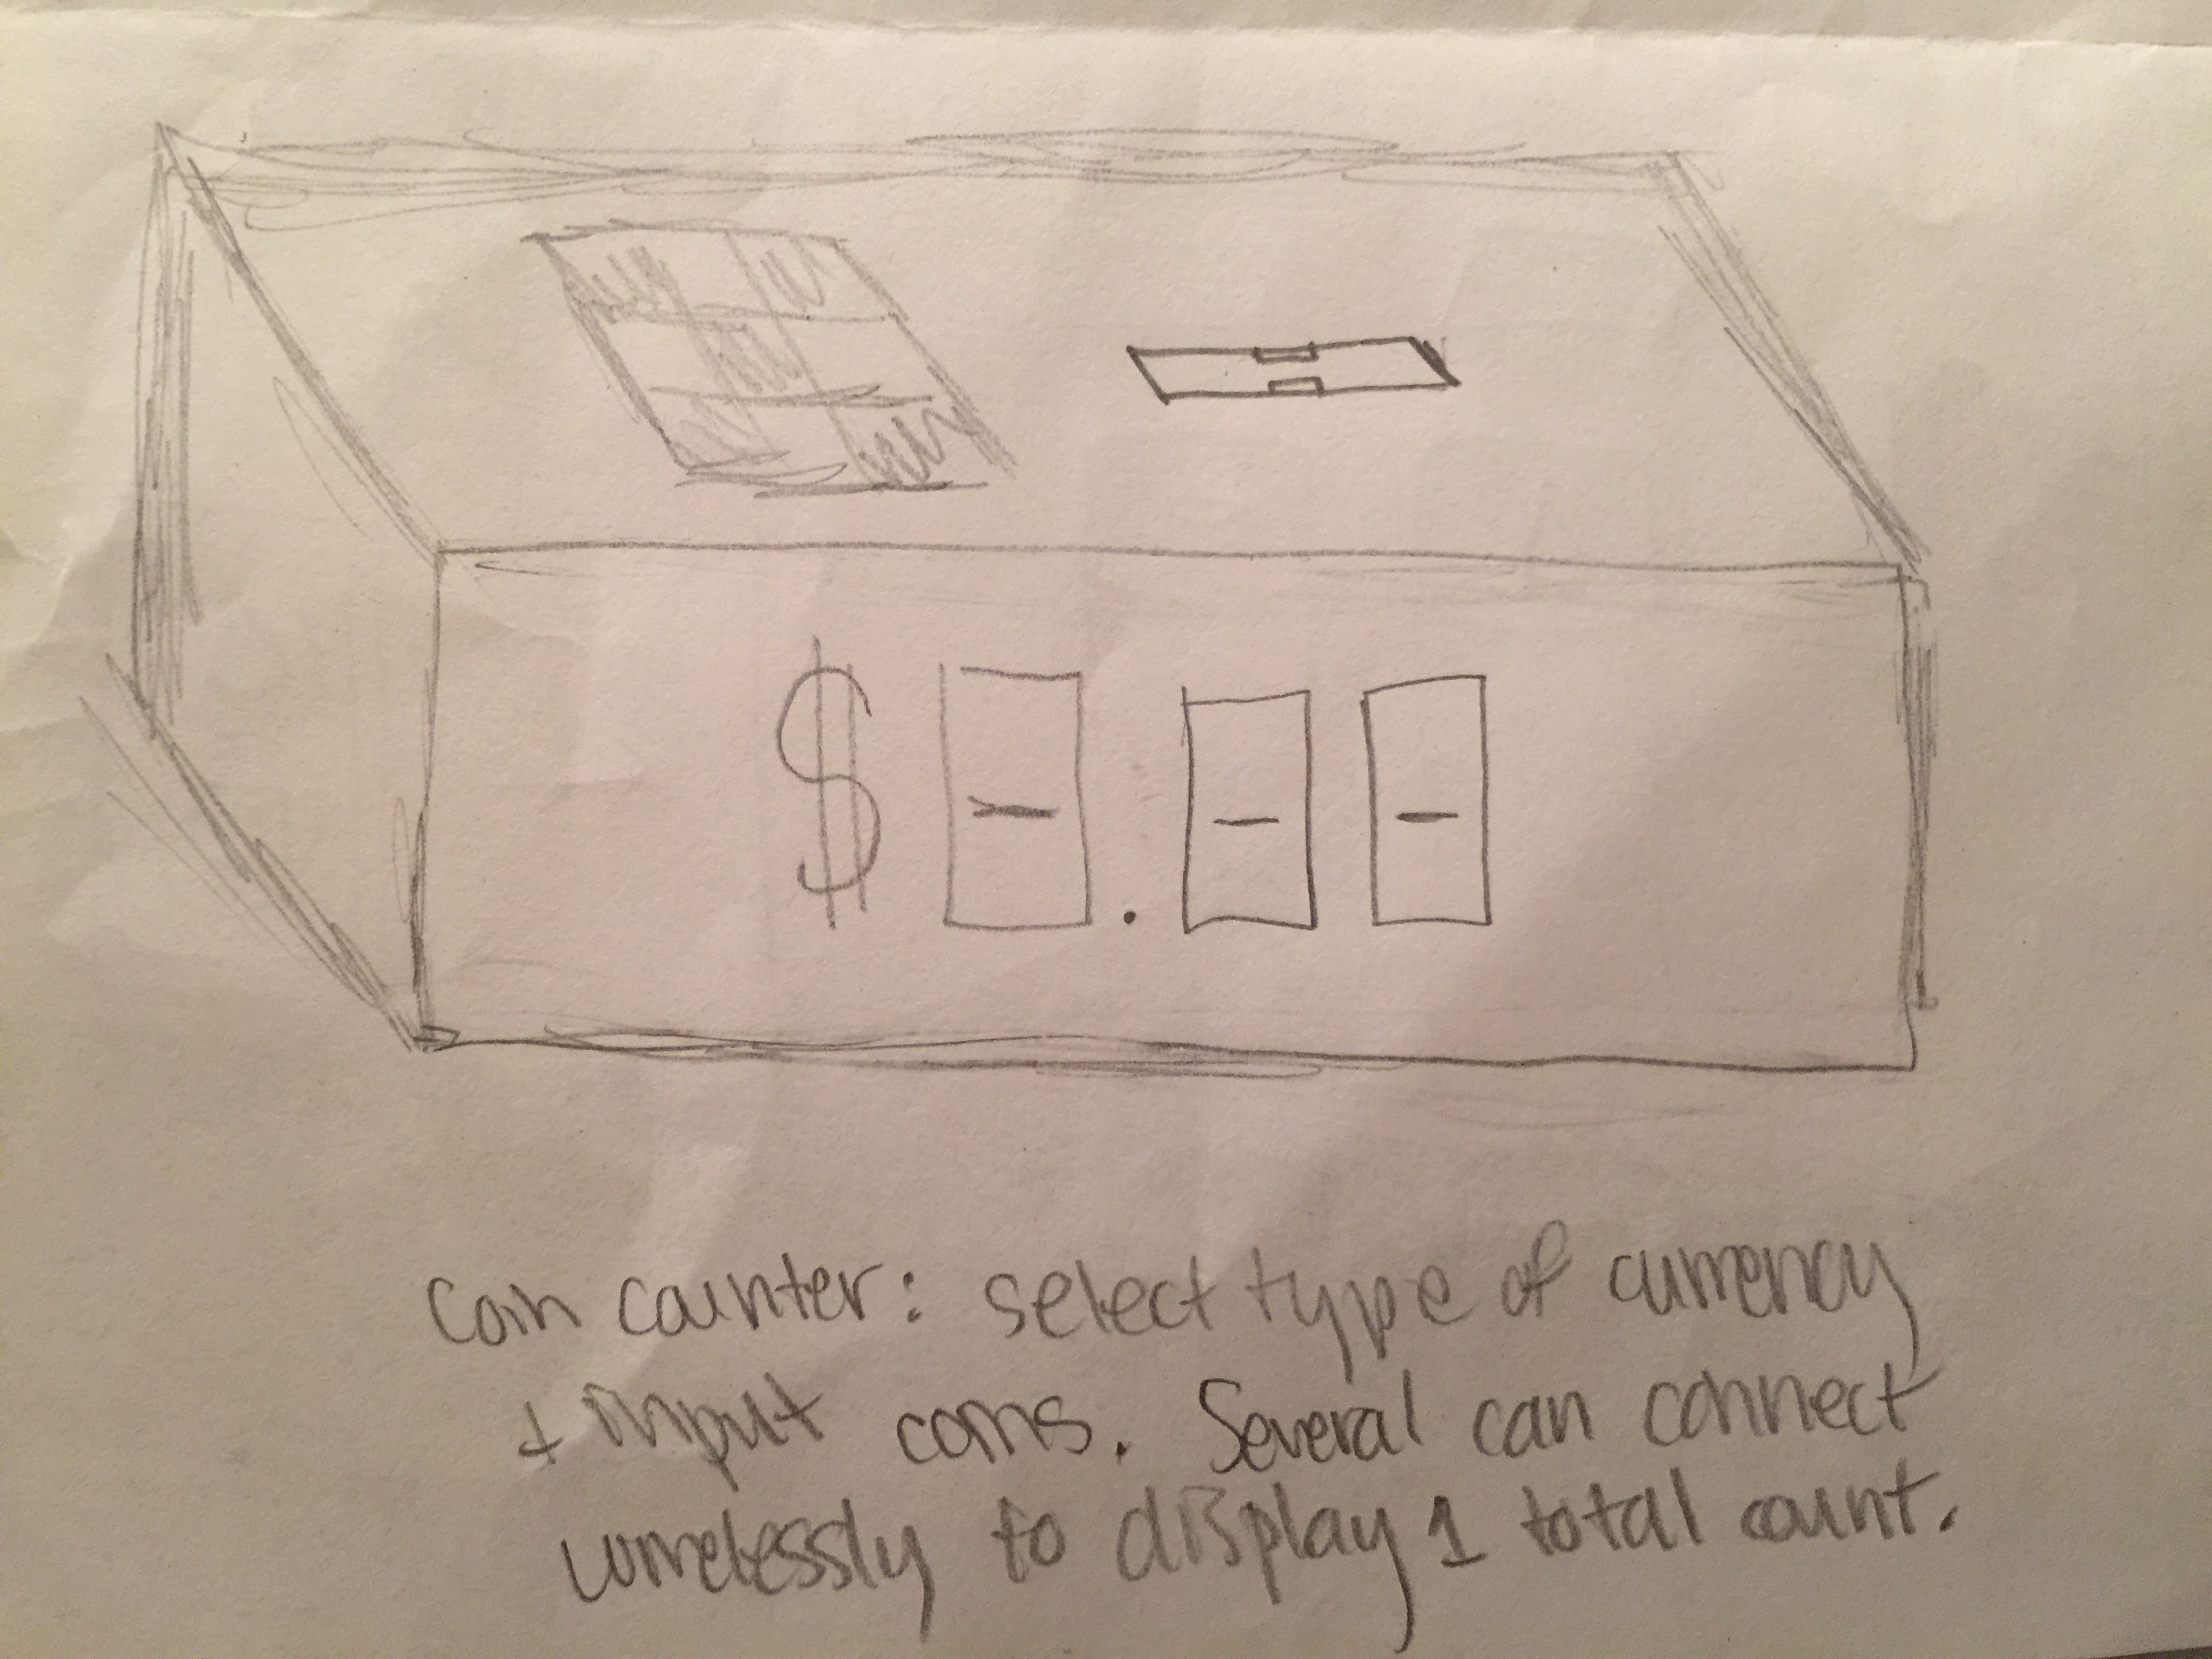 $ - . - -
Coin counter: select type of currency
+ input coins. Several can connect
wirelessly to display 1 total count.